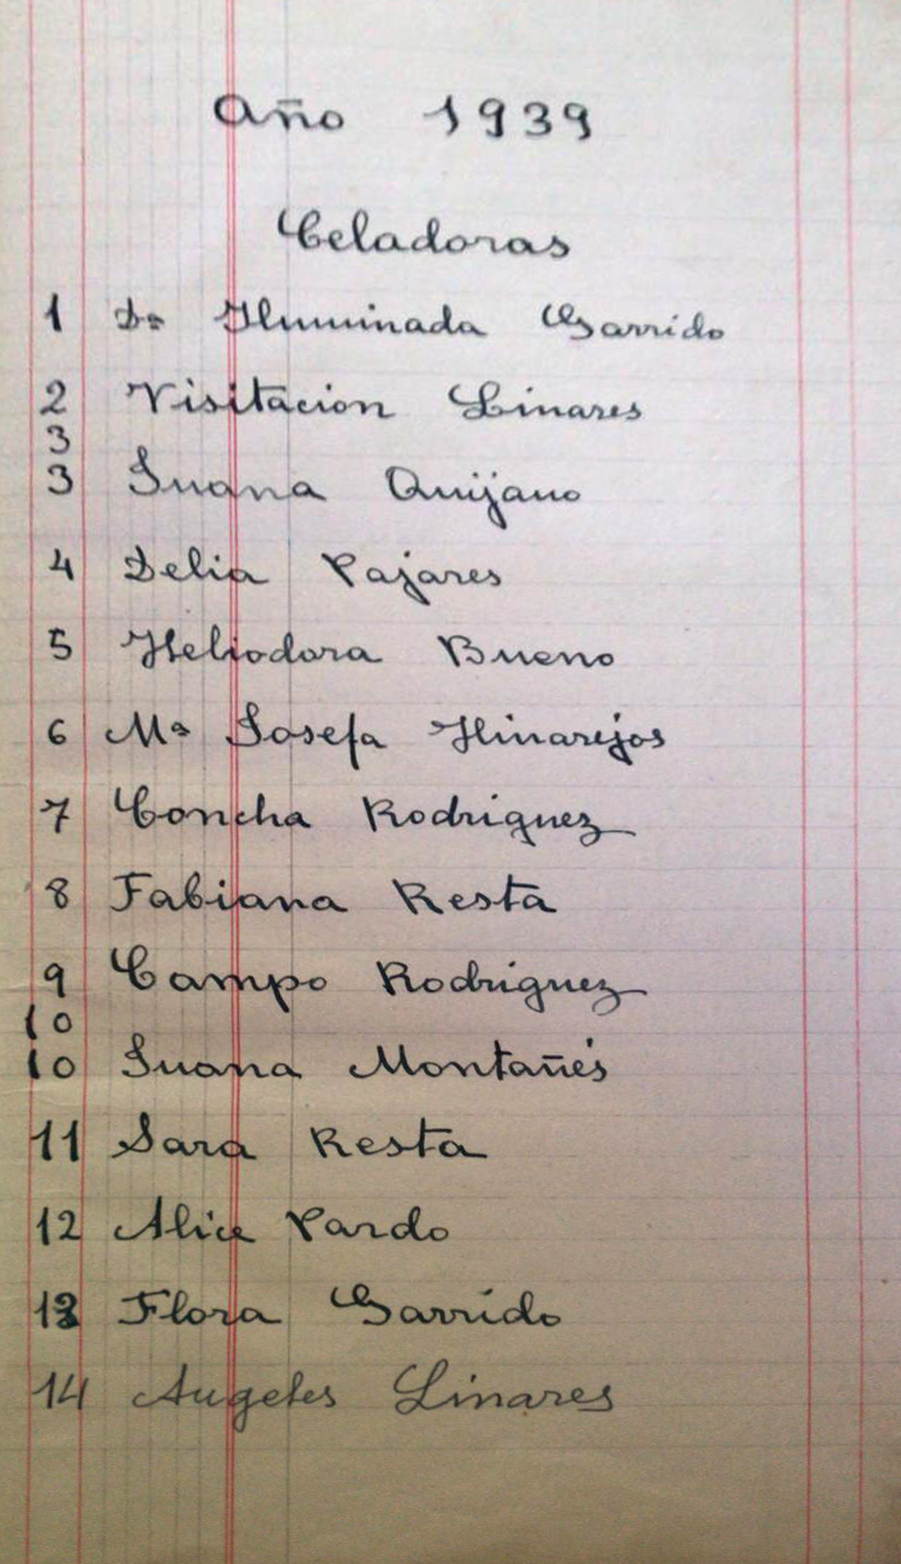 Año 1939
Celadoras
1 Dª Iluminada Garrido
2 Visitacion Linares
3
3 Juana Quijano
4 Delia Pajares
5 Heliodora Bueno
6 Mª Josefa Hinarejos
7 Concha Rodriguez
8 Fabiana Resta
9 Campo Rodriguez
10
10 Juana Montañés
11 Sara Resta
12 Alice Pardo
13 Flora Garrido
14 Angeles Linares